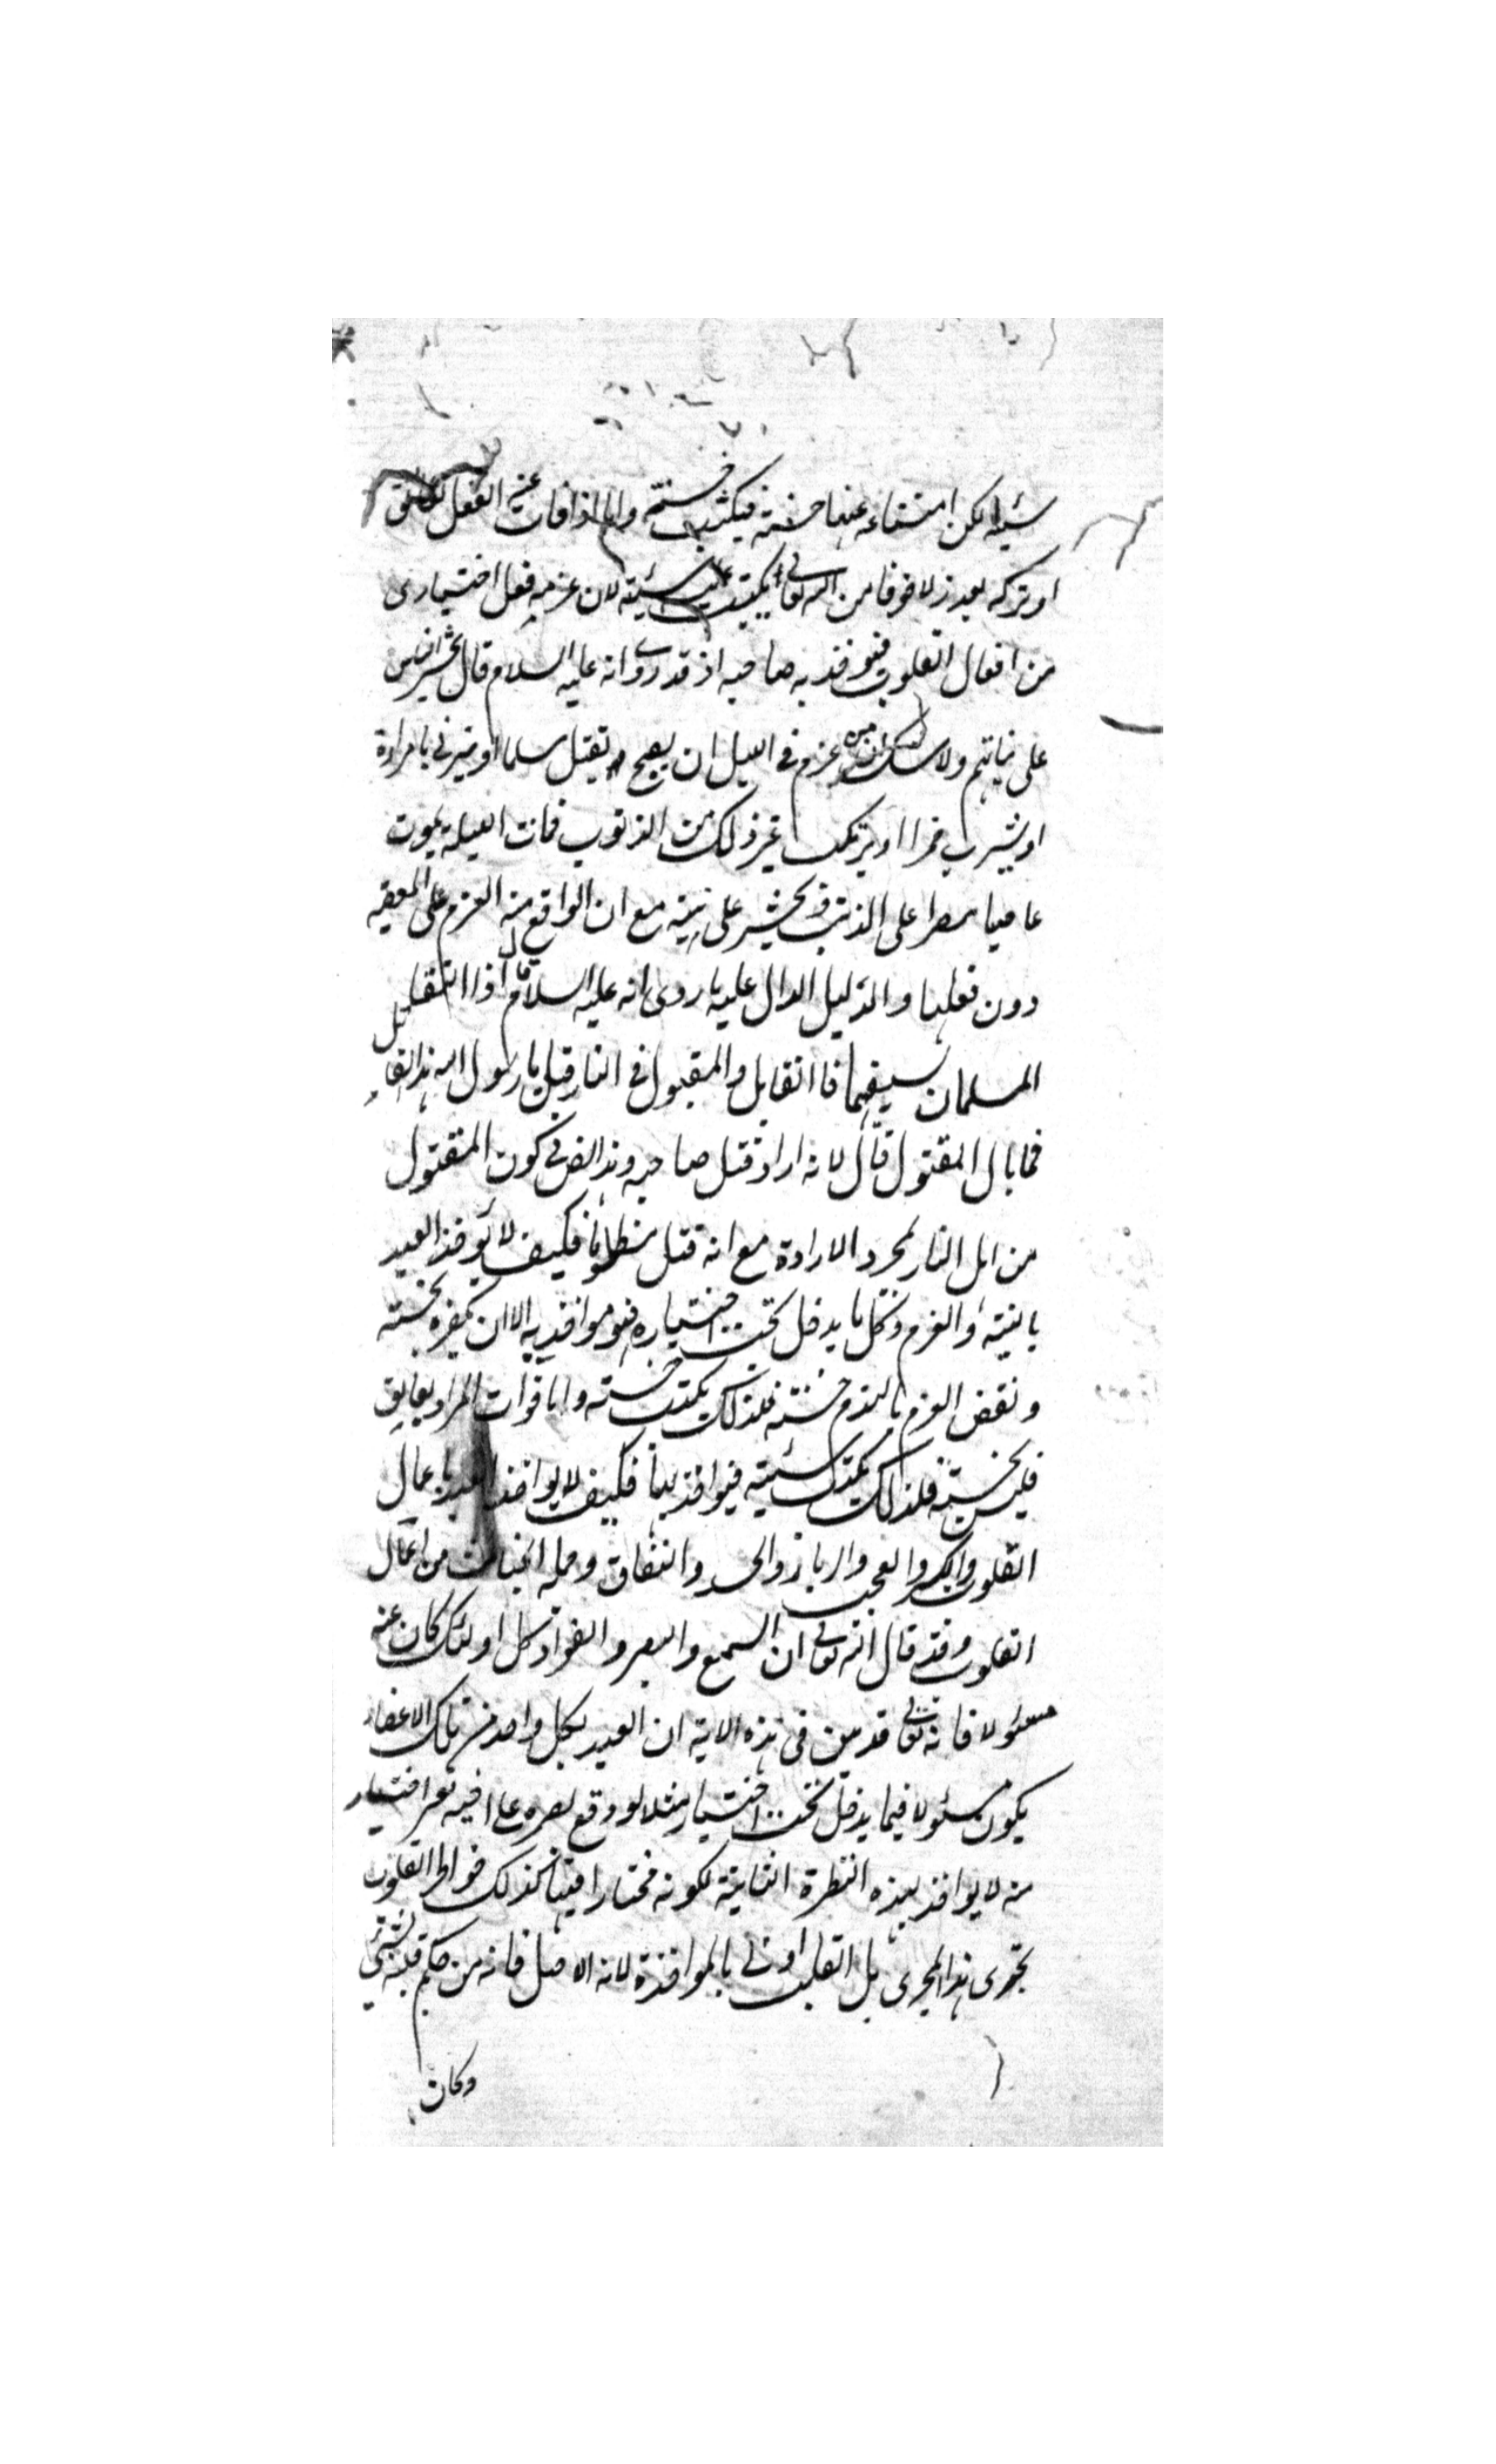 سيئة لكن امتناعه عنها حسنة فيكتب حسنة واما اذا فات عنه الفعل لعائق
او تركه بعذر لا خوفا من الله تعالى يكتب عليه سيئة لان عزمه فعل اختيارى
من افعال القلوب فيؤخذ به صاحبه اذ قد روى انه عليه السلام قال يحشر الناس
على نياتهم ولا شك ان من عزم فى الليل ان يصبح ويقتل مسلما او يزنى بامراة
او يشرب خمرا او يرتكب غير ذلك من الذنوب فمات الليلة يموت
عاصيا مصرا على الذنب ويحشر على نيته مع ان الواقع منه العزم على المعصية
دون فعلها والدليل الدال عليه ما روى انه عليه السلام قال اذا التقا
المسلمان بسيفهما فالقاتل والمقتول فى النار قيل يا رسول الله هذا القاتل
فما بال المقتول قال لانه اراد قتل صاحبه وهذا نص فى كون المقتول
من اهل النار لمجرد الارادة مع انه قتل مظلوما فكيف لا يؤخذ العبد
بالنية والعزم وكل ما يدخل تحت اختياره فهو مواخذ به الا ان يكفره بحسنة
ونقض العزم بالندم حسنة فلذلك يكتب حسنة واما فوات المراد بعايق
فليس بحسنة فلذلك يكتب سيئة فيواخذ بها فكيف لا يواخذ العبد باعمال
القلوب والكبر والعجب والرياء والحسد والنفاق وجملة الخبائث من اعمال
القلوب وقد قال الله تعالى ان السمع والبصر والفواد كل اولئك كان عنه
مسئولا فانه تعالى قد بين فى هذه الاية ان العبد بكل واحد من تلك الاعضاء
يكون مسئولا فيما يدخل تحت اختياره مثلا لو وقع بصره على اجنبية بغير اختيار
منه لا يواخذ بهذه النظرة الثانية لكونه مختارا فيها كذلك خواطر القلوب
تجرى هذا المجرى بل القلب اولى بالمواخذة لانه الاصل فانه من حكم قلبه بشئ
وكان